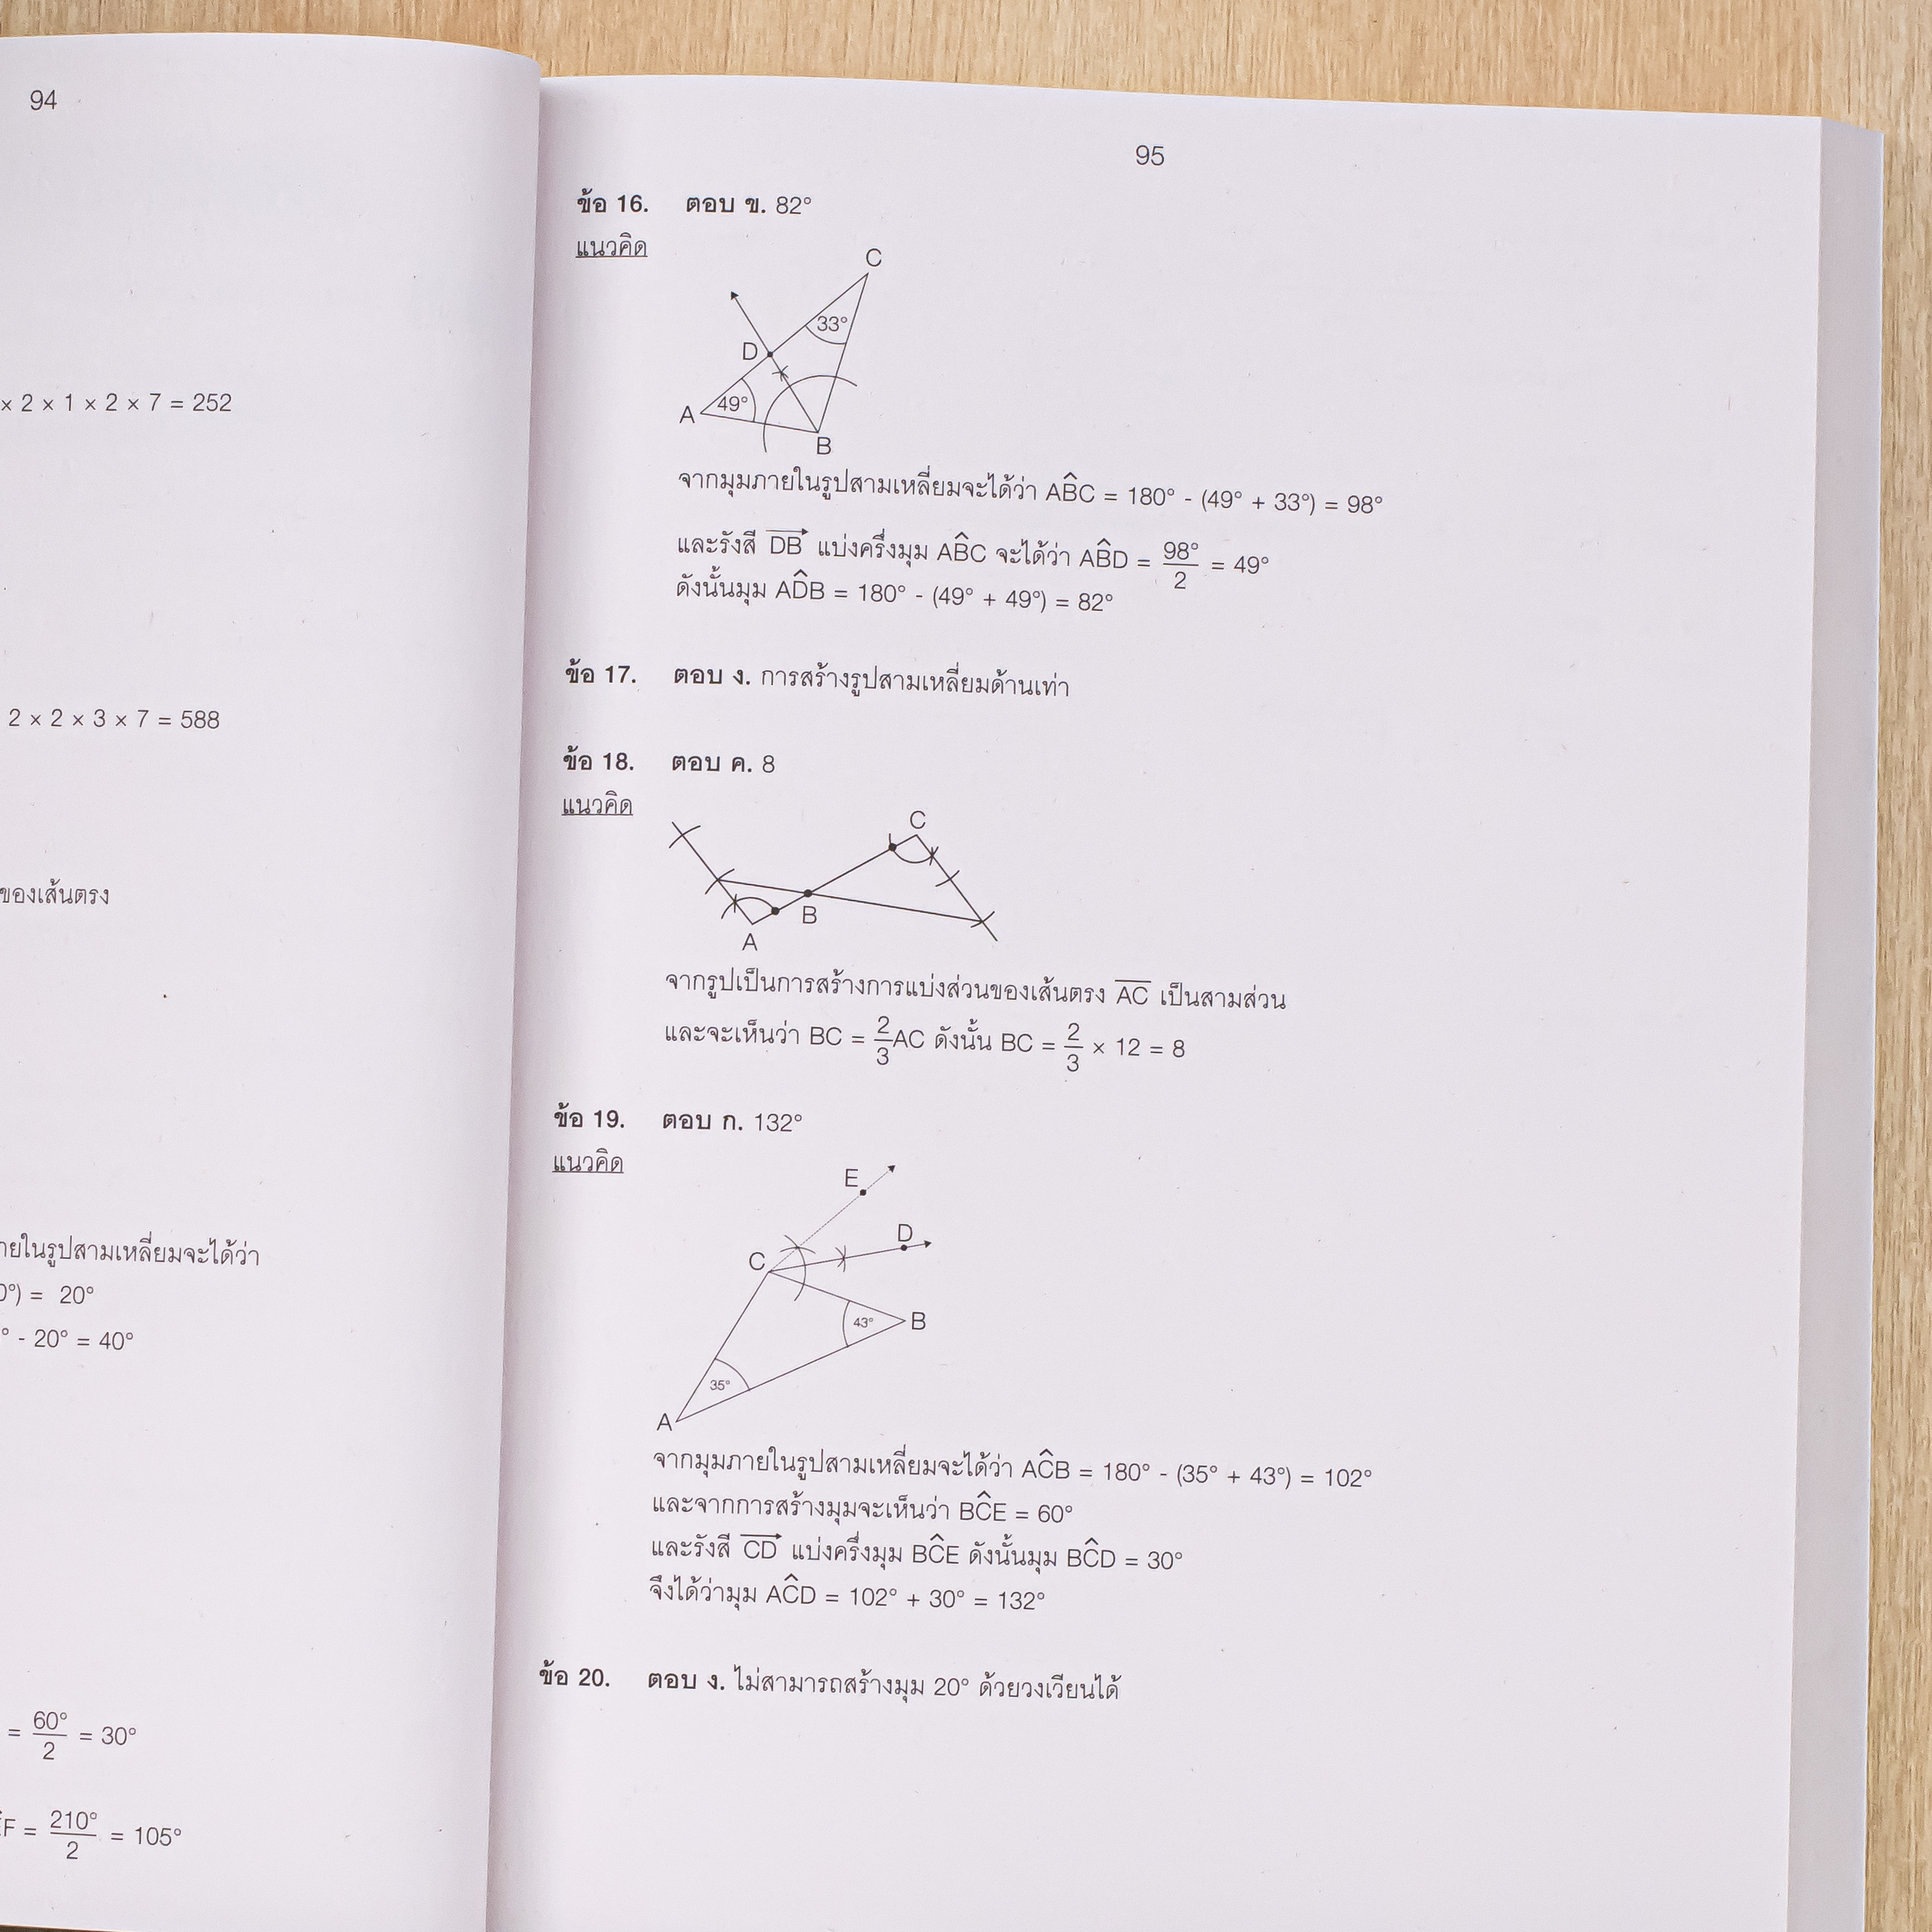 94
× 2 × 1 × 2 × 7 = 252
2 × 2 × 3 × 7 = 588
ของเส้นตรง
ายในรูปสามเหลี่ยมจะได้ว่า
0°) = 20°
° - 20° = 40°
= 60°/2 = 30°
F = 210°/2 = 105°
95
ข้อ 16. ตอบ ข. 82°
แนวคิด
C
33°
D
49°
A
B
จากมุมภายในรูปสามเหลี่ยมจะได้ว่า AB̂C = 180° - (49° + 33°) = 98°
และรังสี DB⃗ แบ่งครึ่งมุม AB̂C จะได้ว่า AB̂D = 98°/2 = 49°
ดังนั้นมุม AD̂B = 180° - (49° + 49°) = 82°
ข้อ 17. ตอบ ง. การสร้างรูปสามเหลี่ยมด้านเท่า
ข้อ 18. ตอบ ค. 8
แนวคิด
C
B
A
จากรูปเป็นการสร้างการแบ่งส่วนของเส้นตรง A̅C̅ เป็นสามส่วน
และจะเห็นว่า BC = 2/3AC ดังนั้น BC = 2/3 × 12 = 8
ข้อ 19. ตอบ ก. 132°
แนวคิด
E
D
C
43°
B
35°
A
จากมุมภายในรูปสามเหลี่ยมจะได้ว่า AĈB = 180° - (35° + 43°) = 102°
และจากการสร้างมุมจะเห็นว่า BĈE = 60°
และรังสี CD⃗ แบ่งครึ่งมุม BĈE ดังนั้นมุม BĈD = 30°
จึงได้ว่ามุม AĈD = 102° + 30° = 132°
ข้อ 20. ตอบ ง. ไม่สามารถสร้างมุม 20° ด้วยวงเวียนได้